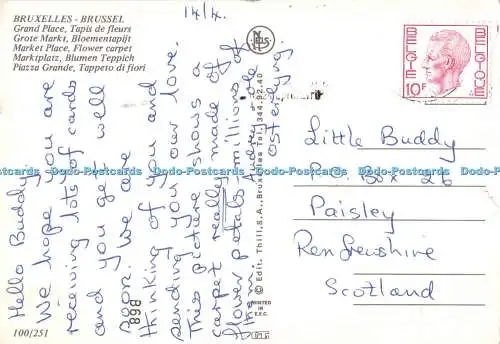 BRUXELLES - BRUSSEL
Grand Place, Tapis de fleurs
Grote Markt, Bloementapijt
Market Place, Flower carpet
Marktplatz, Blumen Teppich
Piazza Grande, Tappeto di fiori
14/4.
Hello Buddy
We hope you are
receiving lots of cards
and you get well
soon. We are
thinking of you and
sending you our love.
This picture shows a
carpet really made of
flower petals, millions of
them.
© Edit. Thill, S.A., Bruxelles Tel. 344.92.40
NELS
BELGIE
BELGIQUE
10F
Little Buddy
P.O. Box 26
Paisley
Renfrewshire
Scotland
B68
PRINTED IN E.E.C.
100/251
Postcards Postcards Postcards Postcards Postcards